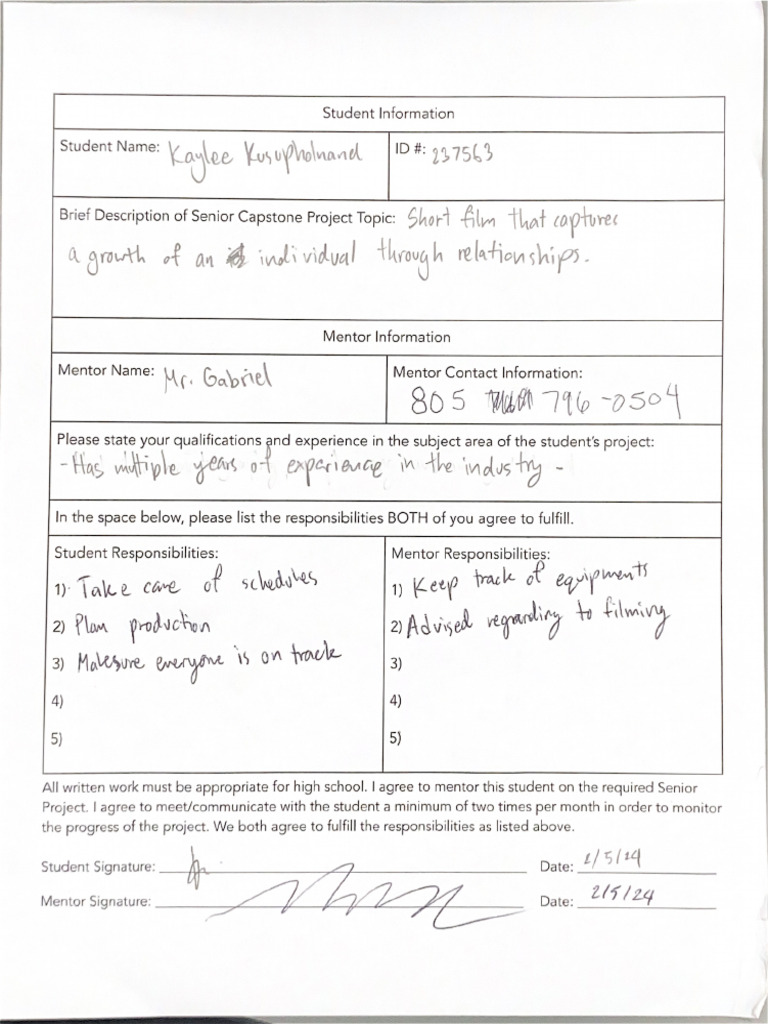 Student Information
Student Name: Kaylee Kusupholnand
ID #: 237563
Brief Description of Senior Capstone Project Topic: Short film that captures
a growth of an individual through relationships.
Mentor Information
Mentor Name: Mr. Gabriel
Mentor Contact Information:
805 796-0504
Please state your qualifications and experience in the subject area of the student's project:
- Has multiple years of experience in the industry -
In the space below, please list the responsibilities BOTH of you agree to fulfill.
Student Responsibilities:
1) Take care of schedules
2) Plan production
3) Makesure everyone is on track
4)
5)
Mentor Responsibilities:
1) Keep track of equipments
2) Advised regrarding to filming
3)
4)
5)
All written work must be appropriate for high school. I agree to mentor this student on the required Senior
Project. I agree to meet/communicate with the student a minimum of two times per month in order to monitor
the progress of the project. We both agree to fulfill the responsibilities as listed above.
Student Signature:
Date: 2/5/24
Mentor Signature:
Date: 2/5/24